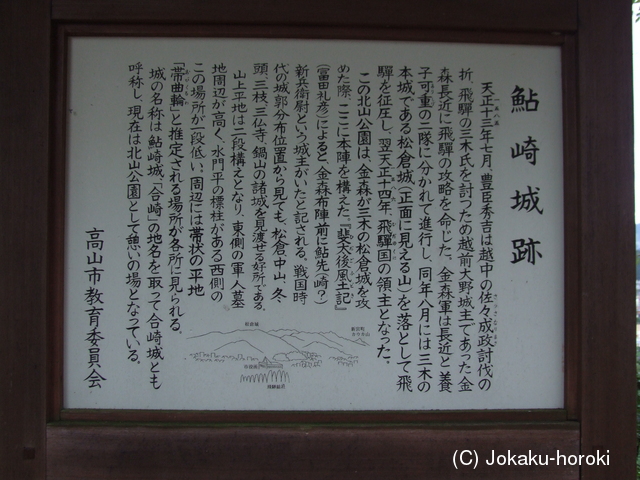 鮎崎城跡
天正十三年七月、豊臣秀吉は越中の佐々成政討伐の
折、飛騨の三木氏を討つため越前大野城主であった金
森長近に飛騨の攻略を命じた。金森軍は長近と養
子可重の二隊に分かれて進行し、同年八月には三木の
本城である松倉城(正面に見える山)を落として飛
騨を征圧し、翌天正十四年、飛騨国の領主となった。
この北山公園は、金森が三木の松倉城を攻
めた際、ここに本陣を構えた。『斐太後風土記』
(冨田礼彦)によると、金森布陣前に鮎先(崎?)
新兵衛尉という城主がいたと記される。戦国時
代の城郭分布位置から見ても、松倉、中山、冬
頭、三枝、三仏寺、鍋山の諸城を見渡せる好所である。
山上平地は二段構えとなり、東側の軍人墓
地周辺が高く、水門平の標柱がある西側の
この場所が一段低い。周辺には帯状の平地
「帯曲輪」と推定される場所が各所に見られる。
城の名称は鮎崎城、「合崎」の地名を取って合崎城とも
呼称し、現在は北山公園として憩いの場となっている。
高山市教育委員会
(C) Jokaku-horoki